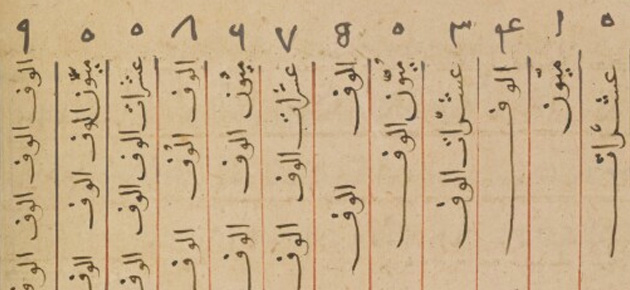 ٩ ٥ ٥ ٨ ٩ ٧ B ٥ ٣ ۴ ١ ٥
عشرات
مئون
الوف
عشرات الوف
مئون الوف
الوف الوف
عشرات الوف الوف
مئون الوف الوف
الوف الوف الوف
عشرات الوف الوف الوف
مئون الوف الوف الوف
الوف الوف الوف الوف